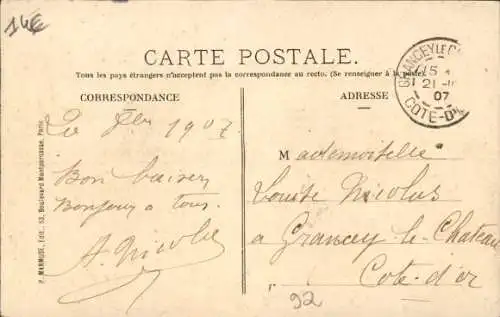 14€
CARTE POSTALE.
Tous les pays étrangers n'acceptent pas la correspondance au recto. (Se renseigner à la poste).
CORRESPONDANCE
ADRESSE
GRANCEY LE CH
15
21
07
COTE-D'
1907
Bon baiser
Bonjour a tous.
A. Nicolas
P. MARMUSE, Edit., 53, Boulevard Montparnasse, Paris.
Mademoiselle
Louise Nicolas
a Grancey-le-Chateau
" Cote-d'or
92